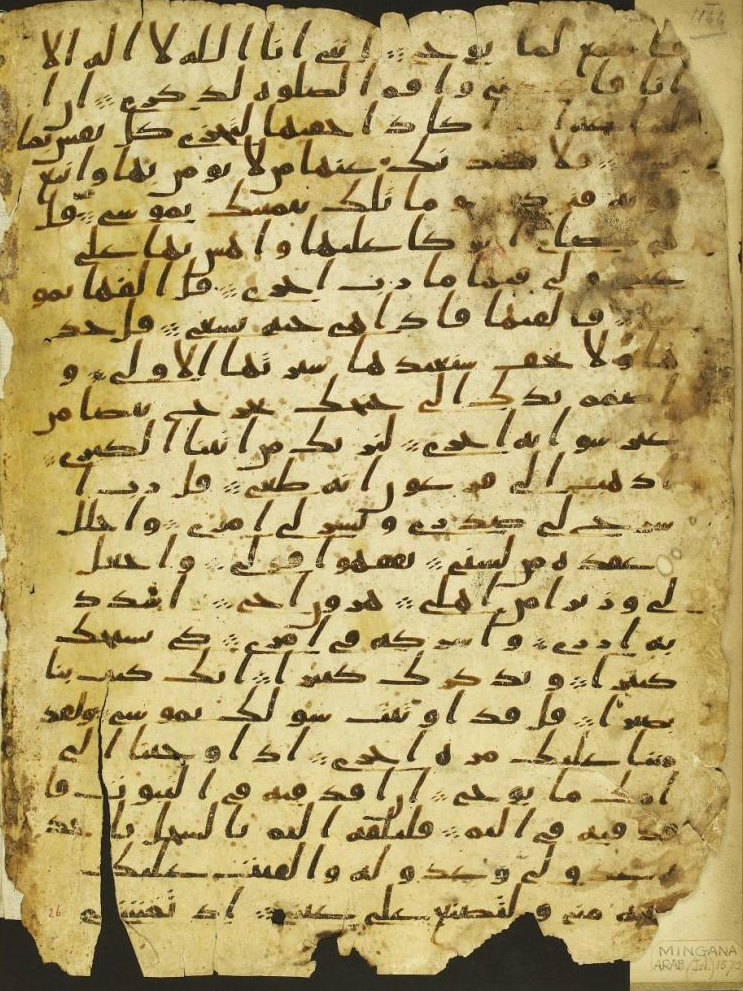 فاستمع لما يوحى انني انا الله لا اله الا
انا فاعبدني واقم الصلوه لذكري ان ا
اكاد اخفيها لتجزى كل نفس بما
فلا يصدنك عنها من لا يومن بها واتبع
هويه فتردى وما تلك بيمينك يموسى قل
هي عصاي اتوكا عليها واهش بها على
غنمي ولي فيها مارب اخرى قل القها يمو
سى فالقيها فاذا هي حيه تسعى قل خذ
ها ولا تخف سنعيدها سيرتها الاولى و
اضمم يدك الى جنحك تخرج بيضا من
غير سوا ايه اخرى لنريك من ايتنا الكبرى
اذهب الى فرعون انه طغى قل رب ا
شرح لي صدري ويسر لي امري واحلل
عقده من لسني يفقهوا قولي واجعل
لي وزيرا من اهلي هرون اخي اشدد
به ازري واشركه في امري كي نسبحك
كثيرا ونذكرك كثيرا انك كنت بنا
بصيرا قل قد اوتيت سولك يموسى ولقد
مننا عليك مره اخرى اذ اوحينا الى
امك ما يوحى ان اقذفيه في التبوت فا
قذفيه في اليم فليلقه اليم بالسحل ياخذ
ه عدو لي وعدو له والقيت عليك
محبه مني ولتصنع على عيني اذ تمشي
26
MINGANA
ARAB. (Isl.) 1572